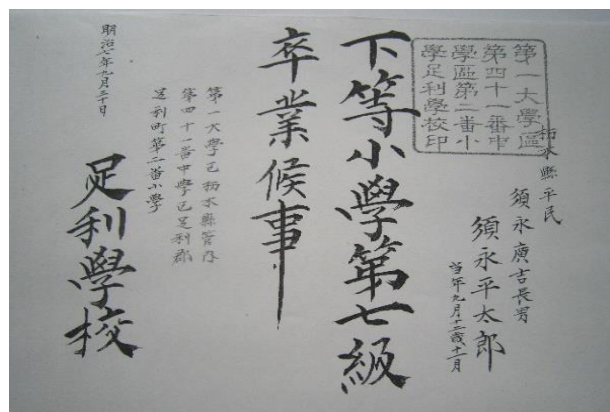 第一大學區
第四十一番中
學區第二番小
學足利學校印
栃木縣平民
須永廣吉長男
須永平太郎
当年九月十二歳十一月
下等小學第七級
卒業候事
第一大學区栃木縣管内
第四十一番中學区足利郡
足利町第二番小學
足利學校
明治七年九月三十日